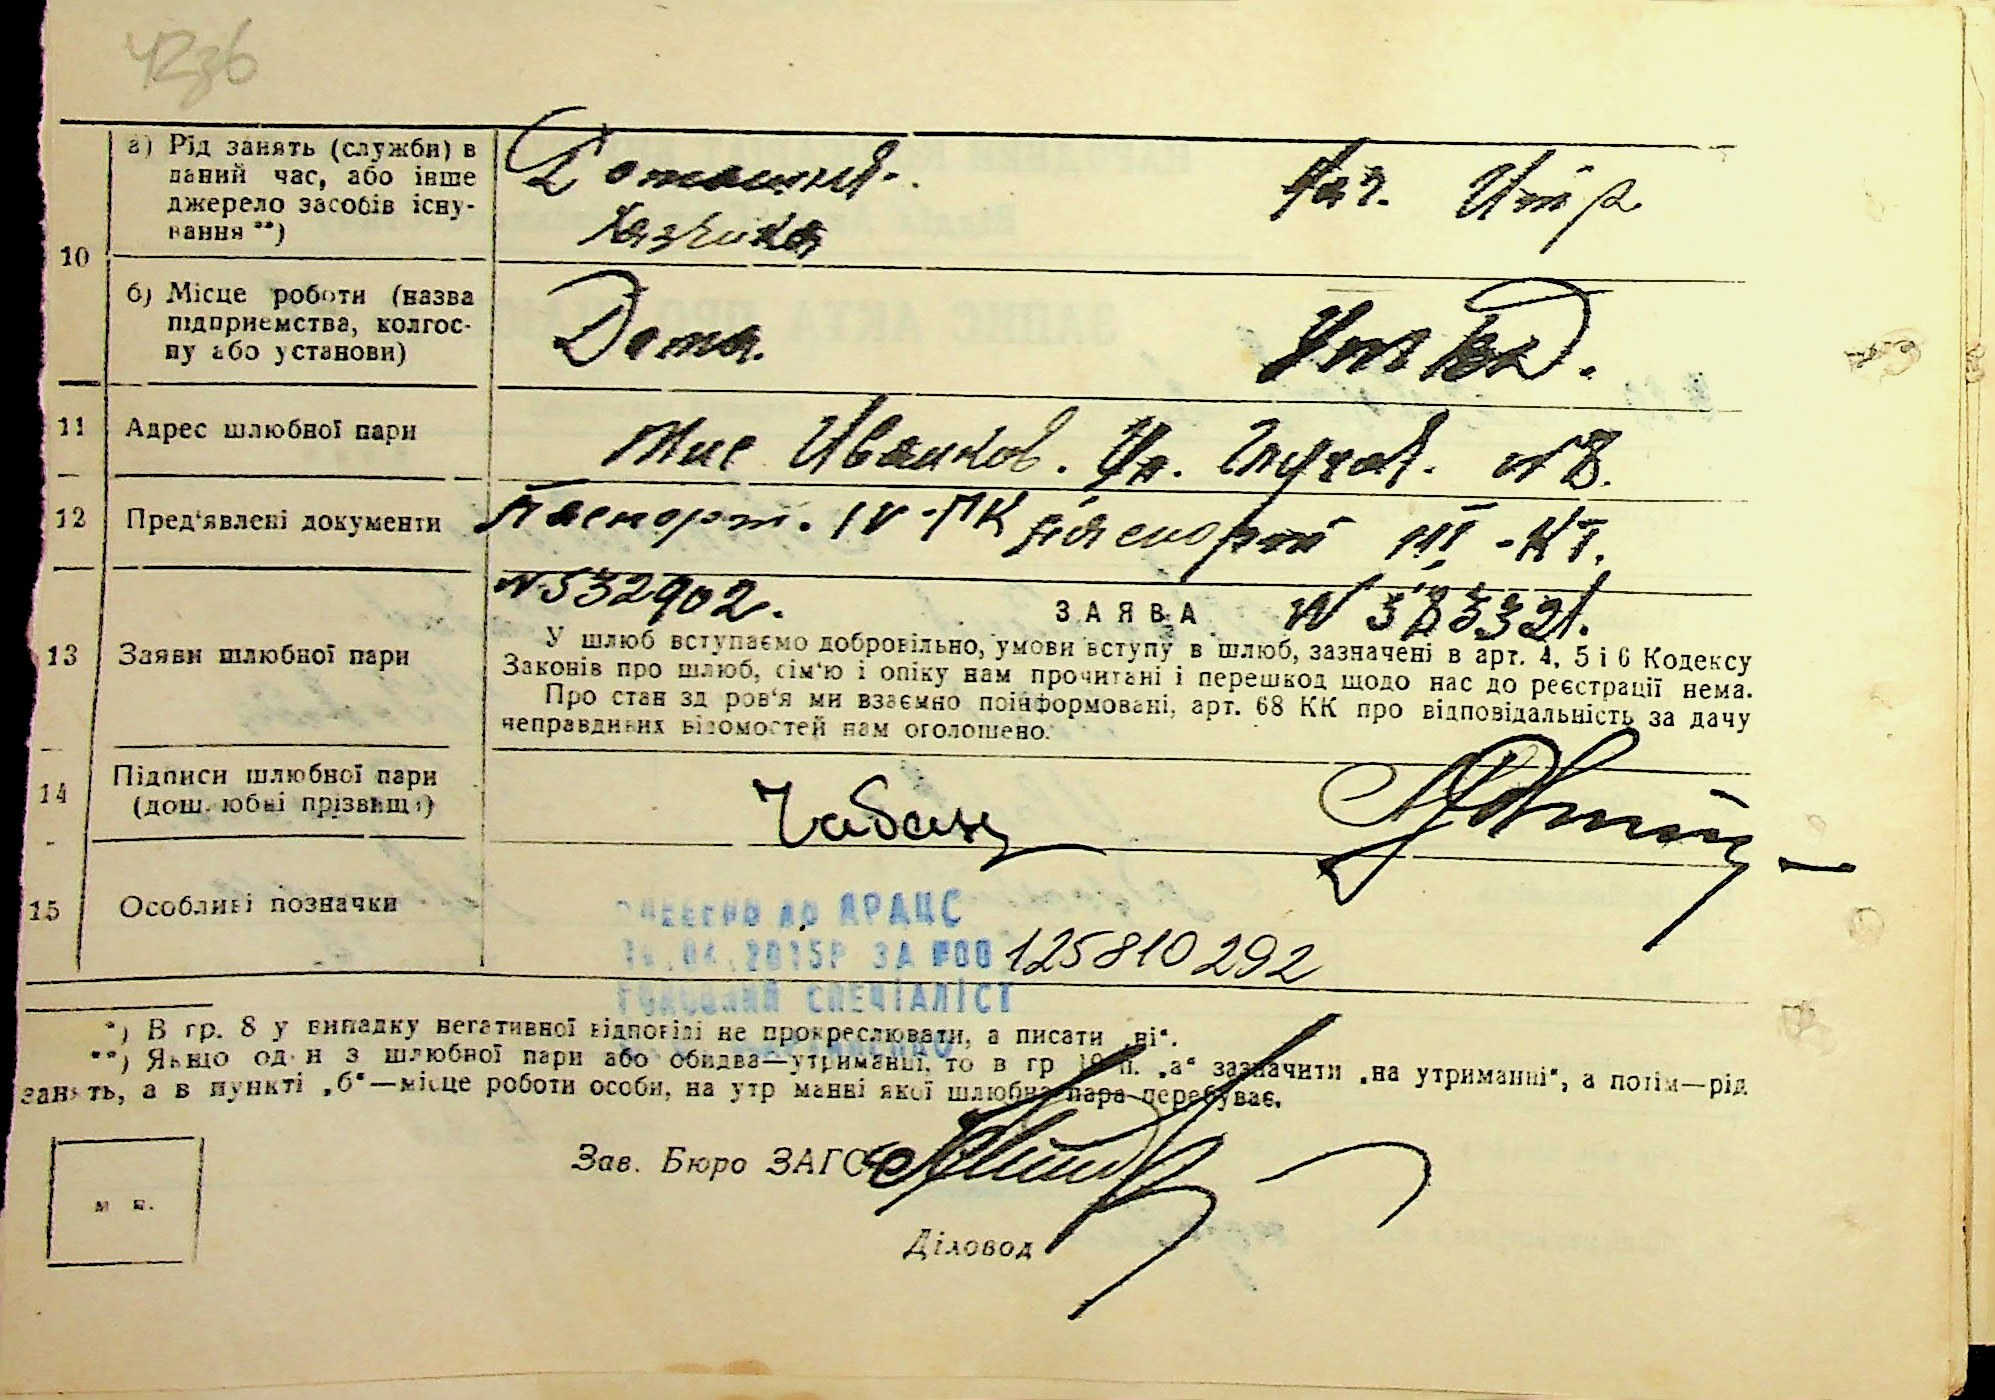 а) Рід занять (служби) в
даний час, або інше
джерело засобів існу-
вання **)
10
б) Місце роботи (назва
підприємства, колгос-
пу або установи)
Дома.
11 Адрес шлюбної пари
Иванков. Ул.
12 Пред'явлені документи
Паспорт. IV-ПК паспорт III-КТ.
N 532902.
ЗАЯВА
13 Заяви шлюбної пари
У шлюб вступаємо добровільно, умови вступу в шлюб, зазначені в арт. 4, 5 і 6 Кодексу
Законів про шлюб, сім'ю і опіку нам прочитані і перешкод щодо нас до реєстрації нема.
Про стан здоров'я ми взаємно поінформовані, арт. 68 КК про відповідальність за дачу
неправдивих відомостей нам оголошено.
14 Підписи шлюбної пари
(дошлюбні прізвища)
Чабан
15 Особливі позначки
ВНЕСЕНО ДО ДРАЦС
.04.2015Р ЗА №00 125810292
ГОЛОВНИЙ СПЕЦІАЛІСТ
*) В гр. 8 у випадку негативної відповіді не прокреслювати, а писати „ні“.
**) Якщо один з шлюбної пари або обидва—утриманці, то в гр 10 п. „а“ зазначити „на утриманні“, а потім—рід
занять, а в пункті „б“—місце роботи особи, на утриманні якої шлюбна пара перебуває.
Зав. Бюро ЗАГС
м п.
Діловод